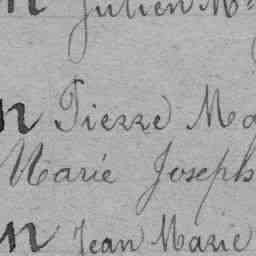 n Julien M
n Pierre Ma
Marie Joseph
n Jean Marie